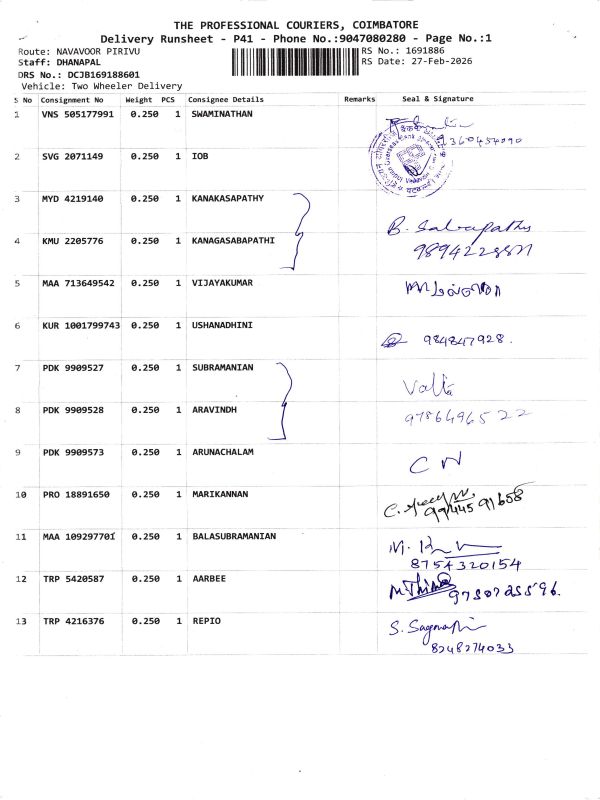 THE PROFESSIONAL COURIERS, COIMBATORE
Delivery Runsheet - P41 - Phone No.:9047080280 - Page No.:1
Route: NAVAVOOR PIRIVU RS No.: 1691886
Staff: DHANAPAL RS Date: 27-Feb-2026
DRS No.: DCJB169188601
Vehicle: Two Wheeler Delivery
S No Consignment No Weight PCS Consignee Details Remarks Seal & Signature
1 VNS 505177991 0.250 1 SWAMINATHAN
9360454090
2 SVG 2071149 0.250 1 IOB
3 MYD 4219140 0.250 1 KANAKASAPATHY
B. Sabapathy
4 KMU 2205776 0.250 1 KANAGASABAPATHI
5 MAA 713649542 0.250 1 VIJAYAKUMAR
6 KUR 1001799743 0.250 1 USHANADHINI
984847928.
7 PDK 9909527 0.250 1 SUBRAMANIAN
8 PDK 9909528 0.250 1 ARAVINDH
9786496522
9 PDK 9909573 0.250 1 ARUNACHALAM
C N
10 PRO 18891650 0.250 1 MARIKANNAN
99445 91658
11 MAA 109297701 0.250 1 BALASUBRAMANIAN
8754320154
12 TRP 5420587 0.250 1 AARBEE
97507 25596.
13 TRP 4216376 0.250 1 REPIO
8248274033